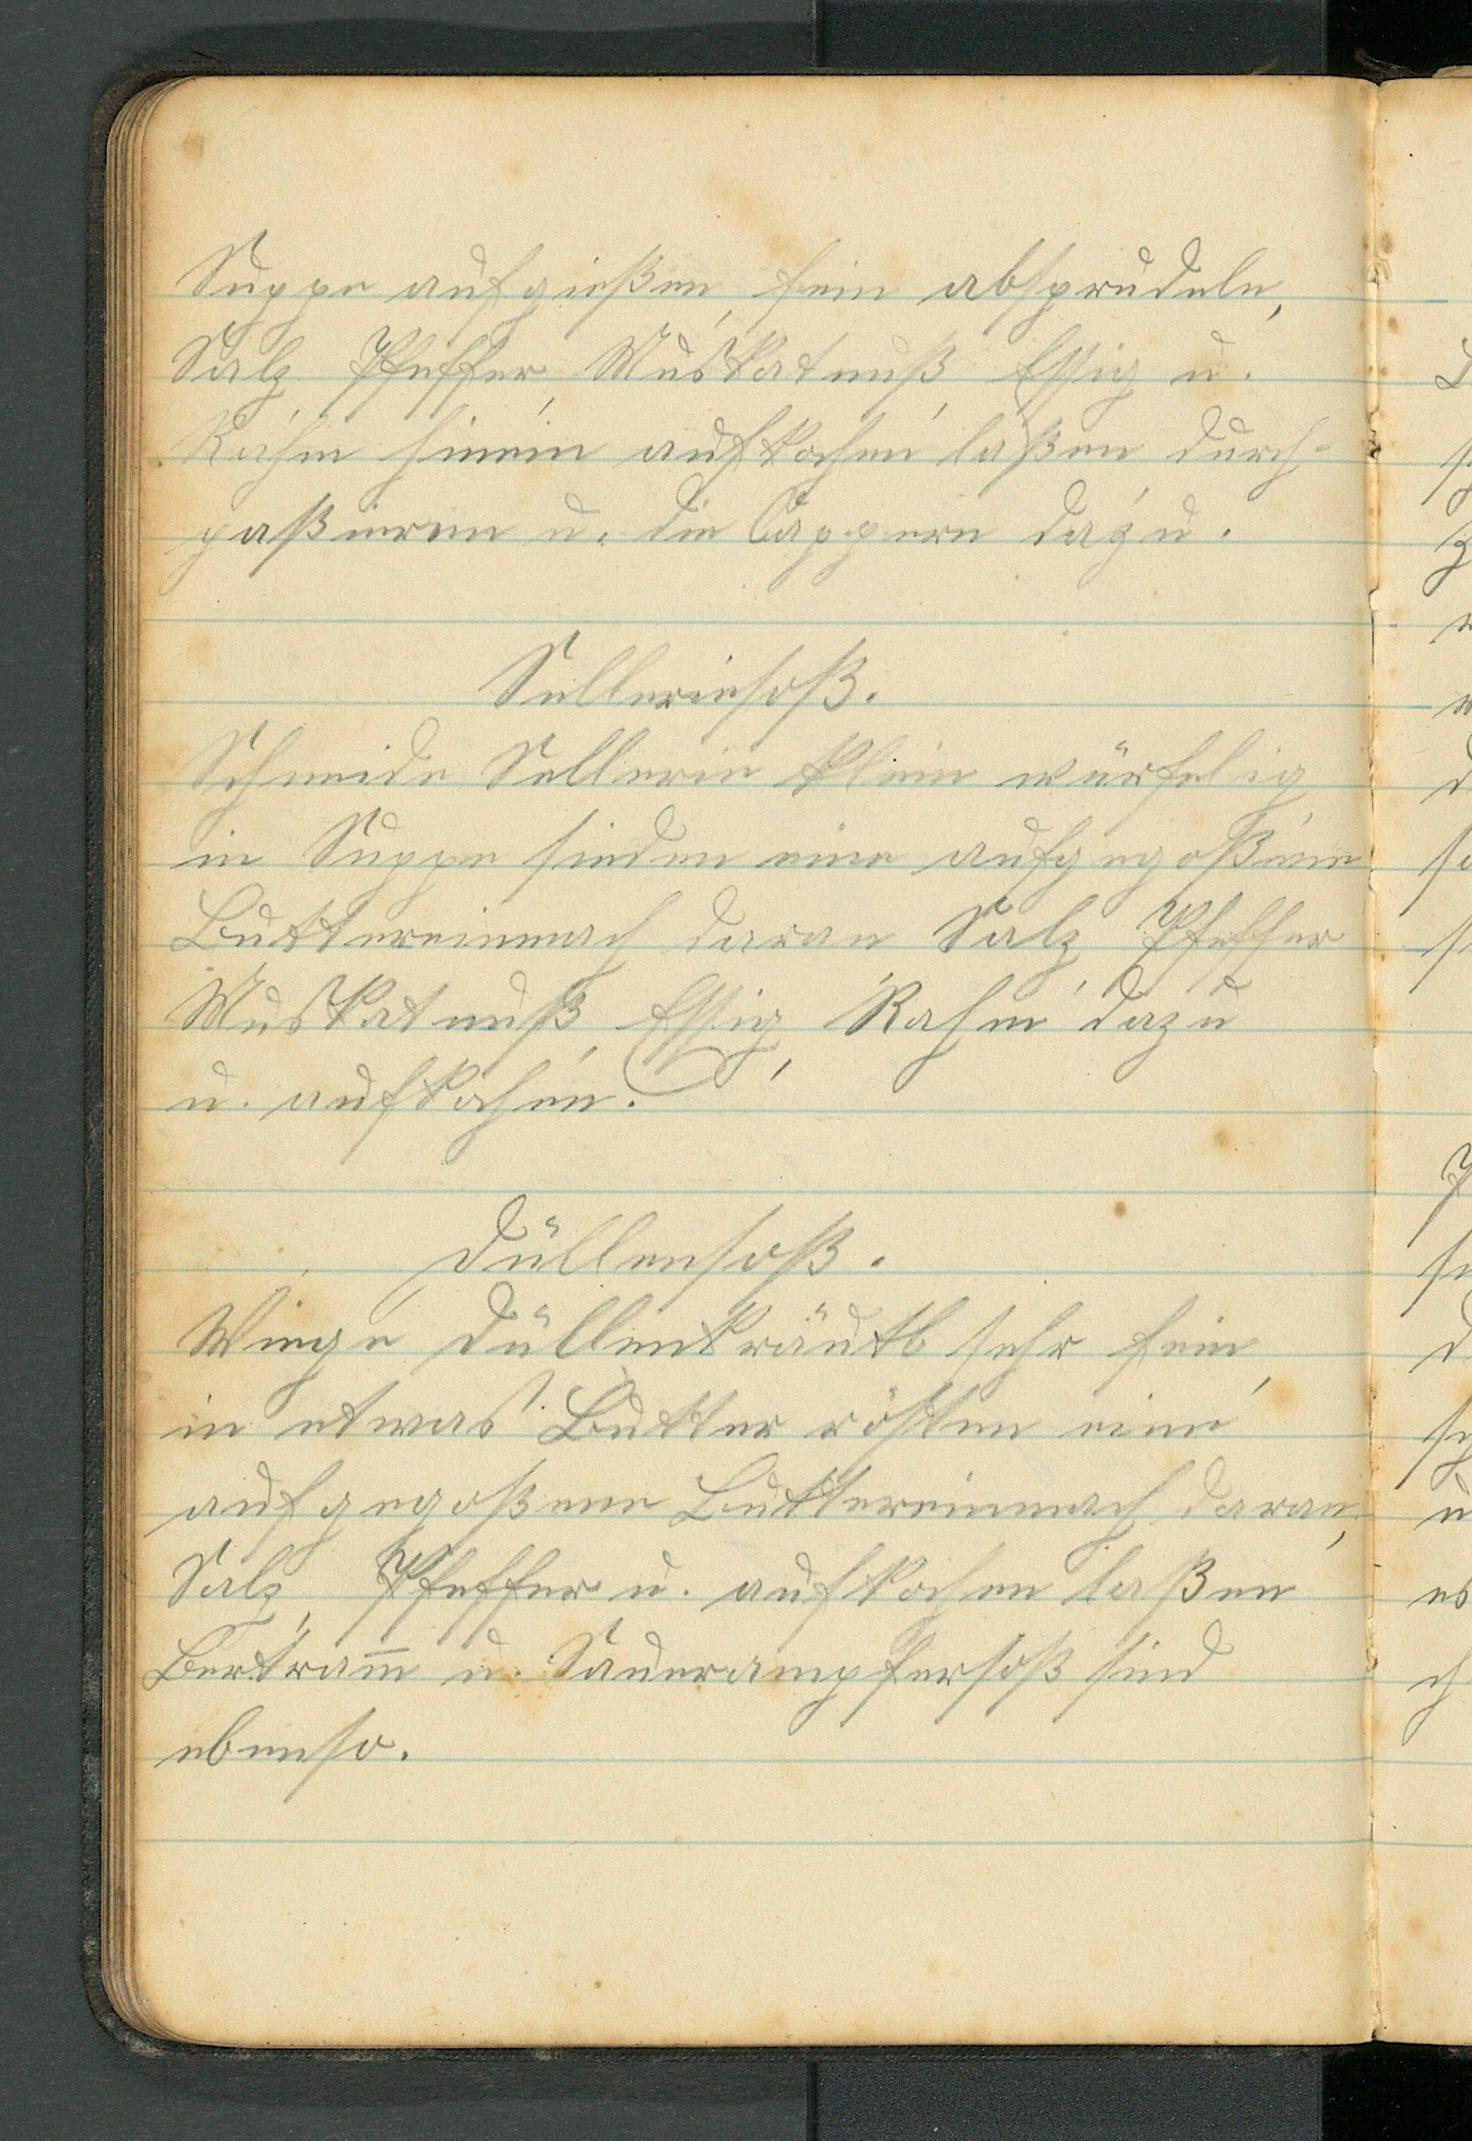 Suppe aufgießen, fein absprudeln,
Salz, Pfeffer, Muskatnuß, Essig u.
Rahm hinein aufkochen laßen durch-
paßieren u. die Cappern dazu.
Selleriesoß.
Schneide Sellerie klein würfelig
in Suppe sieden eine aufgegoßene
Buttereinmach daran Salz, Pfeffer
Muskatnuß, Essig, Rahm dazu
u. aufkochen.
Düllensoß.
Wiege Düllenkräutl sehr fein,
in etwas Butter rösten eine
aufgegoßene Buttereinmach daran,
Salz, Pfeffer u. aufkochen laßen
Bertram̅ u. Sauerampfersoß sind
ebenso.